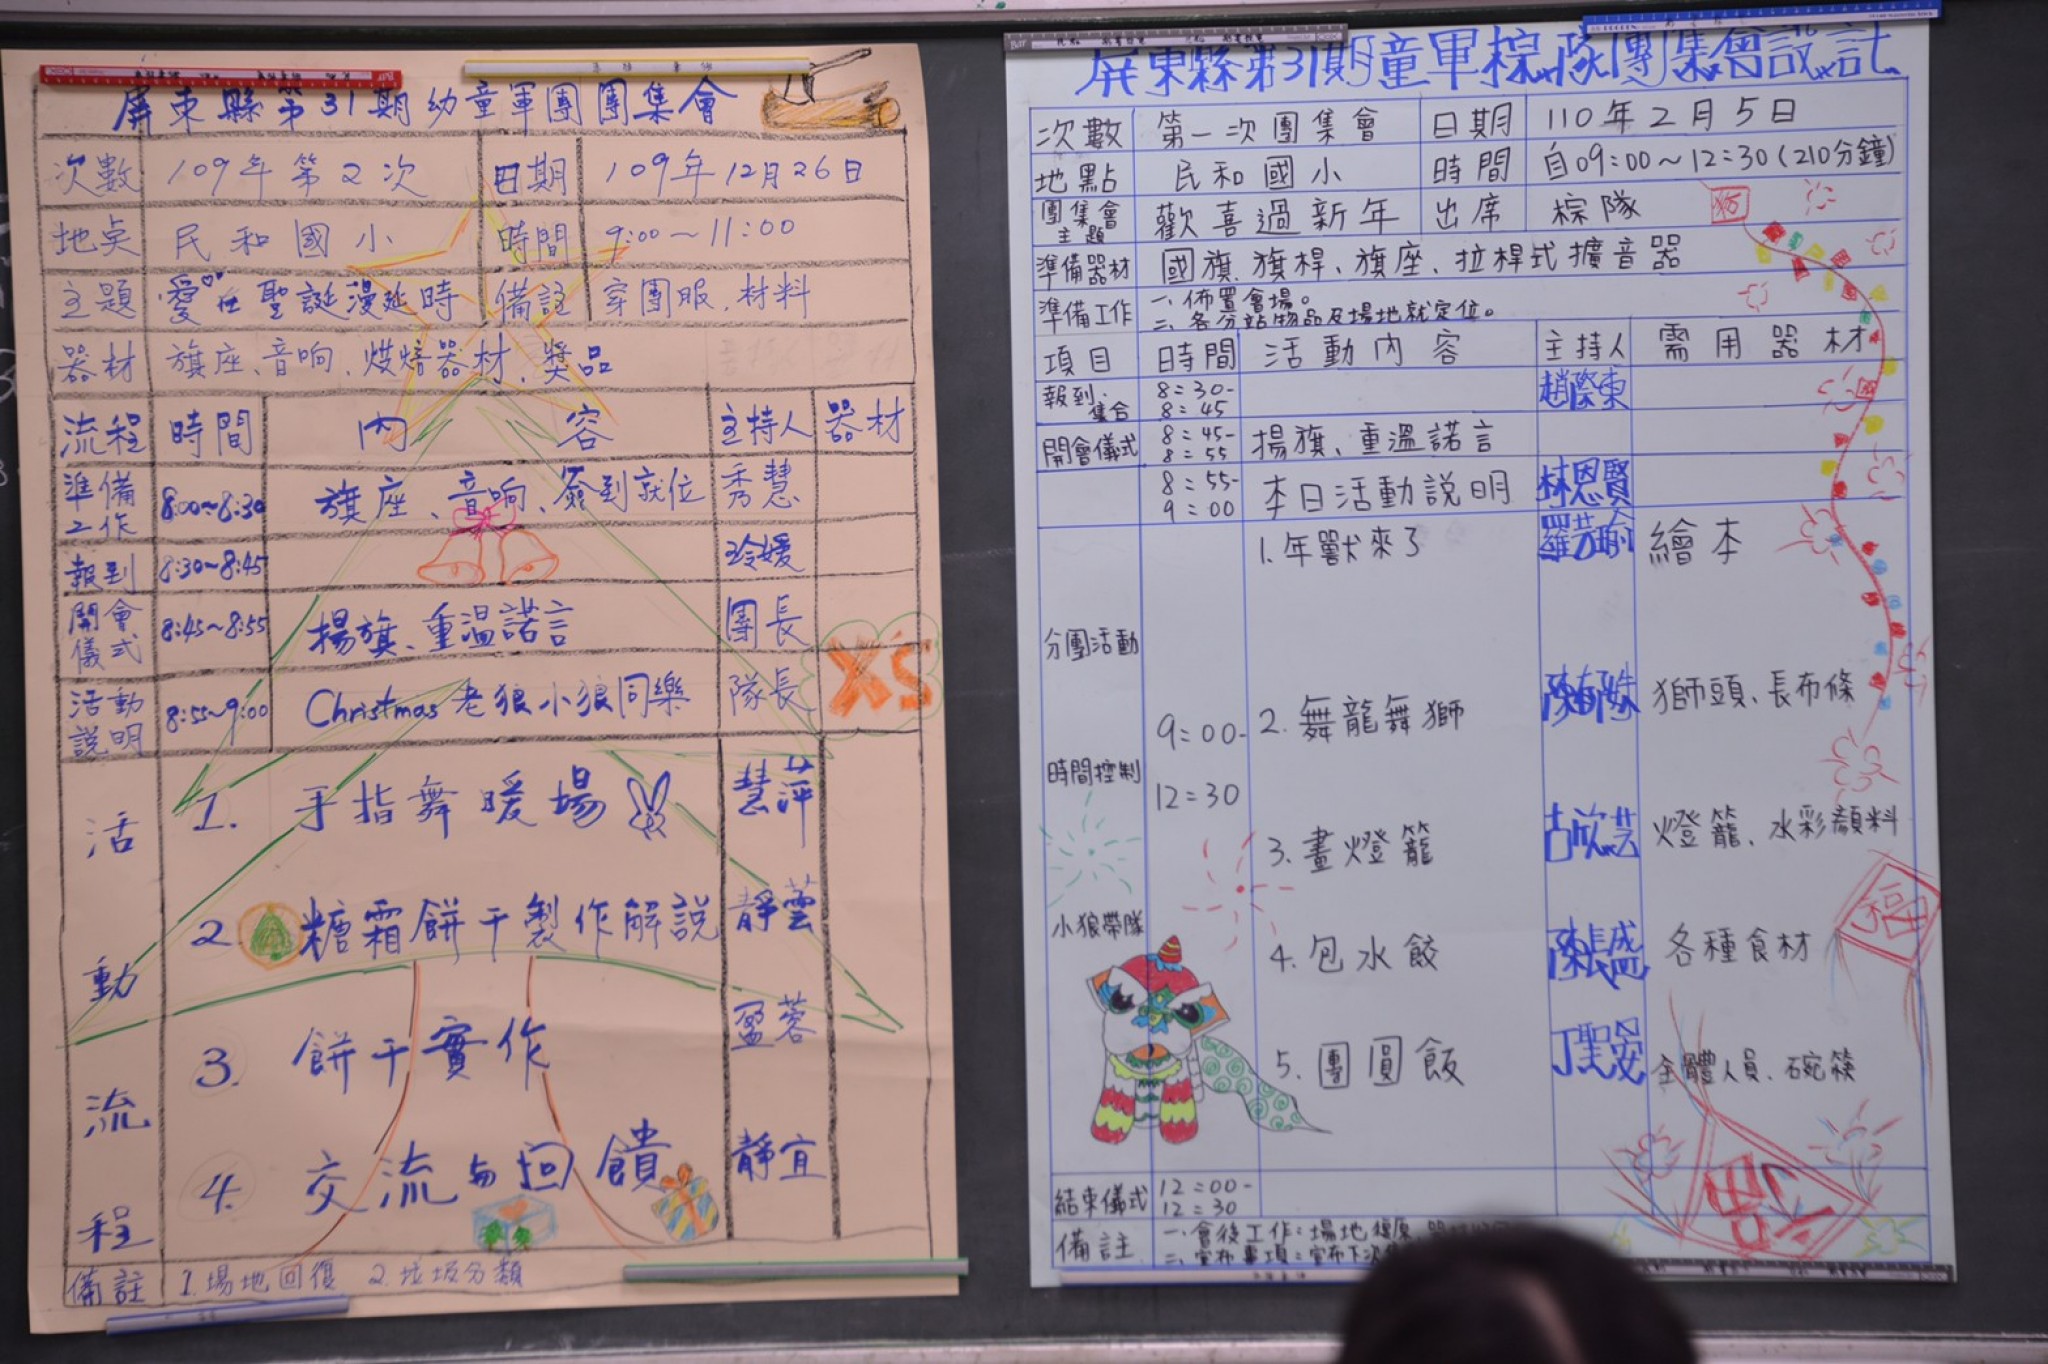 屏東縣第31期幼童軍團團集會
次數 109年第2次 日期 109年12月26日
地點 民和國小 時間 9:00~11:00
主題 愛在聖誕漫延時 備註 穿團服、材料
器材 旗座、音响、烘焙器材、獎品
流程 時間 內容 主持人 器材
準備工作 8:00~8:30 旗座、音响、簽到就位 秀慧
報到 8:30~8:45 玲媛
開會儀式 8:45~8:55 揚旗、重溫諾言 團長
活動說明 8:55~9:00 Christmas 老狼小狼同樂 隊長
活動流程
1. 手指舞暖場 慧萍
2. 糖霜餅干製作解說 靜雲
3. 餅干實作 盈蓉
4. 交流与回饋 靜宜
備註 1.場地回復 2.垃圾分類
屏東縣第31期童軍棕隊團集會設計
次數 第一次團集會 日期 110年2月5日
地點 民和國小 時間 自09:00~12:30(210分鐘)
團集會主題 歡喜過新年 出席 棕隊
準備器材 國旗、旗桿、旗座、拉桿式擴音器
準備工作 一、佈置會場。
二、各分站物品及場地就定位。
項目 時間 活動內容 主持人 需用器材
報到、集合 8:30-8:45 趙際東
開會儀式 8:45-8:55 揚旗、重溫諾言
8:55-9:00 本日活動說明 林恩賢
分團活動 時間控制 小狼帶隊
9:00-12:30
1.年獸來了 繪本
2.舞龍舞獅 獅頭、長布條
3.畫燈籠 古欣芸 燈籠、水彩顏料
4.包水餃 陳長盛 各種食材
5.團圓飯 全體人員、碗筷
福
結束儀式 12:00-12:30
備註 一、會後工作:場地復原、
二、宣布事項:宣布下次